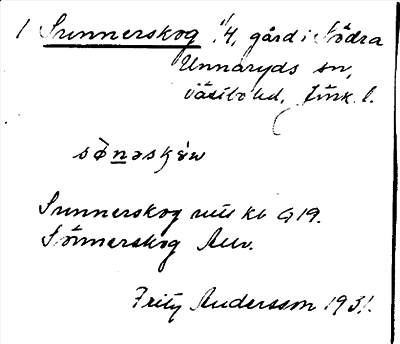 1 Sunnerskog 1/4, gård i Södra
Unnaryds sn,
Västbo hd, Jönk. l.
Sunnerskog kb 19.
Sönnerskog
Frity Andersson 1931.